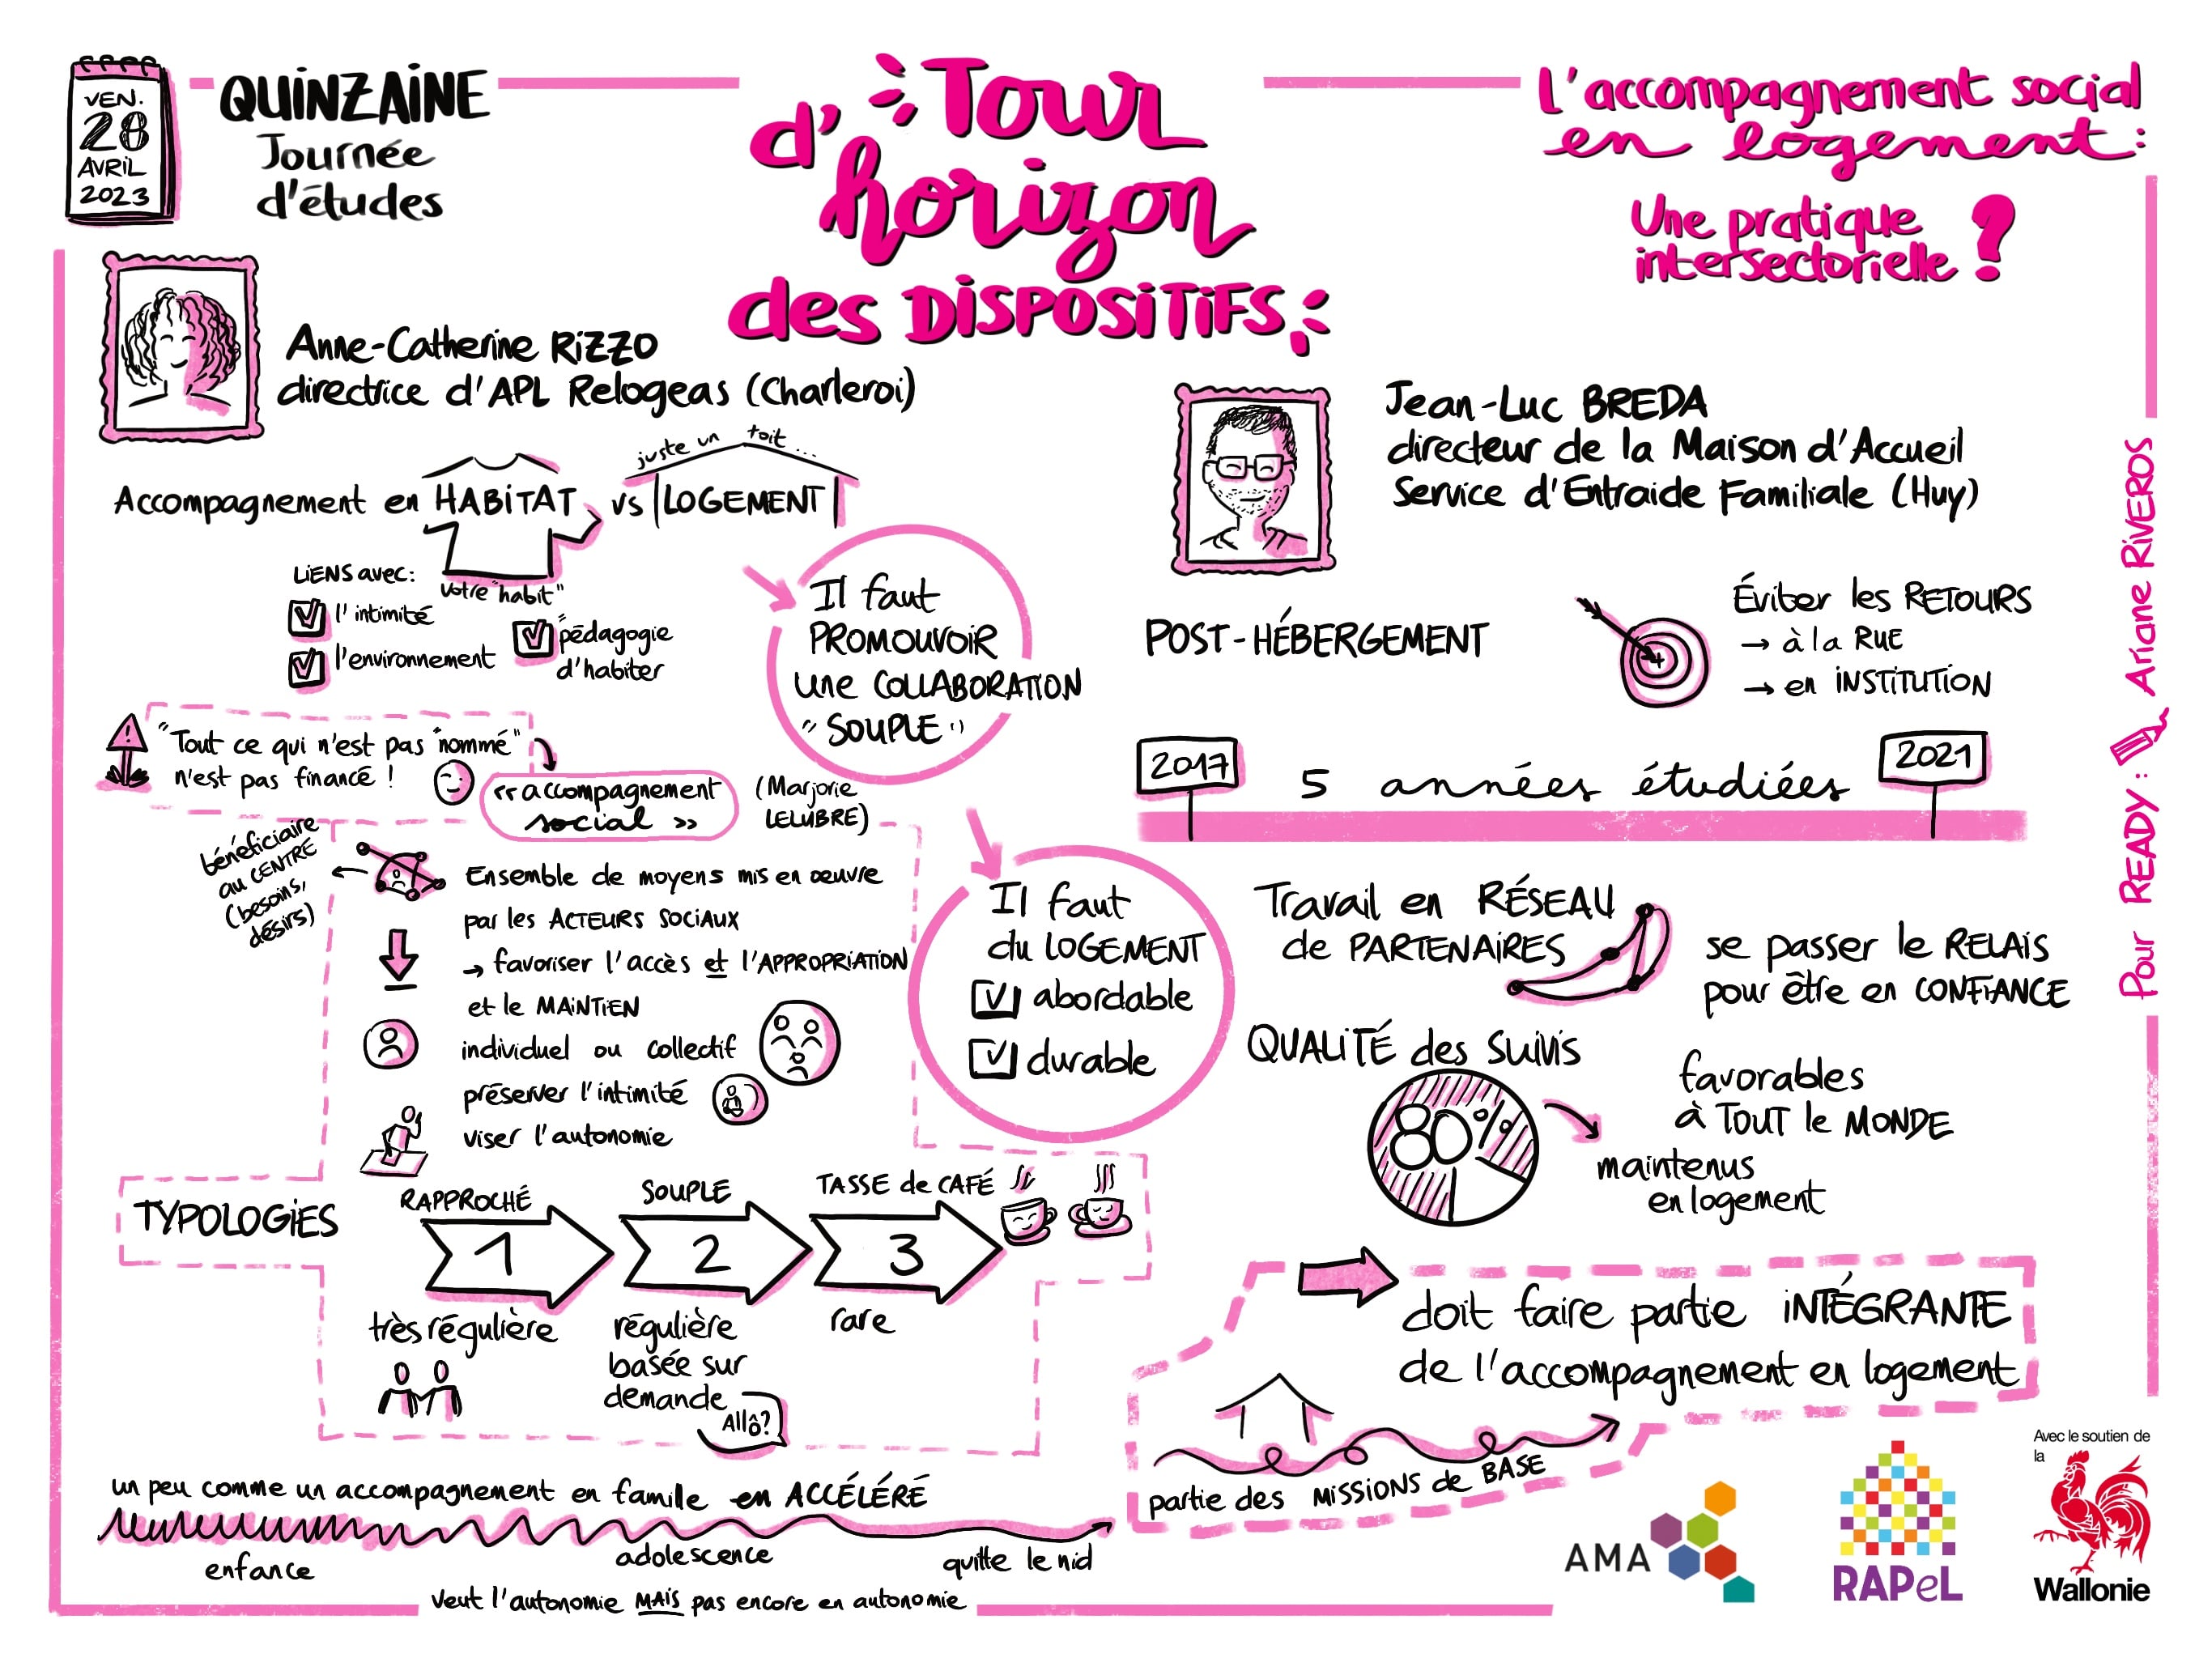 VEN.
28
AVRIL
2023
QUINZAINE
Journée
d'études
Tour
d'horizon
des DISPOSITIFS
L'accompagnement social
en logement:
Une pratique
intersectorielle ?
Anne-Catherine RIZZO
directrice d'APL Relogeas (Charleroi)
juste un toit...
Accompagnement en HABITAT vs LOGEMENT
votre "habit"
LIENS avec:
l'intimité
l'environnement
pédagogie
d'habiter
Il faut
PROMOUVOIR
une COLLABORATION
"SOUPLE"
"Tout ce qui n'est pas "nommé"
n'est pas financé !
«accompagnement
social »
(Marjorie
LELUBRE)
bénéficiaire
au CENTRE
(besoins,
désirs)
Ensemble de moyens mis en œuvre
par les ACTEURS SOCIAUX
→ favoriser l'accès et l'APPROPRIATION
et le MAINTIEN
individuel ou collectif
préserver l'intimité
viser l'autonomie
Il faut
du LOGEMENT
abordable
durable
TYPOLOGIES
RAPPROCHÉ
1
très régulière
SOUPLE
2
régulière
basée sur
demande
Allô?
TASSE de CAFÉ
3
rare
un peu comme un accompagnement en famille en ACCÉLÉRÉ
enfance
adolescence
quitte le nid
Veut l'autonomie MAIS pas encore en autonomie
Jean-Luc BREDA
directeur de la Maison d'Accueil
Service d'Entraide Familiale (Huy)
POST-HÉBERGEMENT
Éviter les RETOURS
→ à la RUE
→ en INSTITUTION
2017
5 années étudiées
2021
Travail en RÉSEAU
de PARTENAIRES
se passer le RELAIS
pour être en CONFIANCE
QUALITÉ des SUIVIS
80%
favorables
à TOUT le MONDE
maintenus
en logement
doit faire partie INTÉGRANTE
de l'accompagnement en logement
partie des MISSIONS de BASE
Pour READY: Ariane RIVEROS
AMA
RAPeL
Avec le soutien de
la
Wallonie